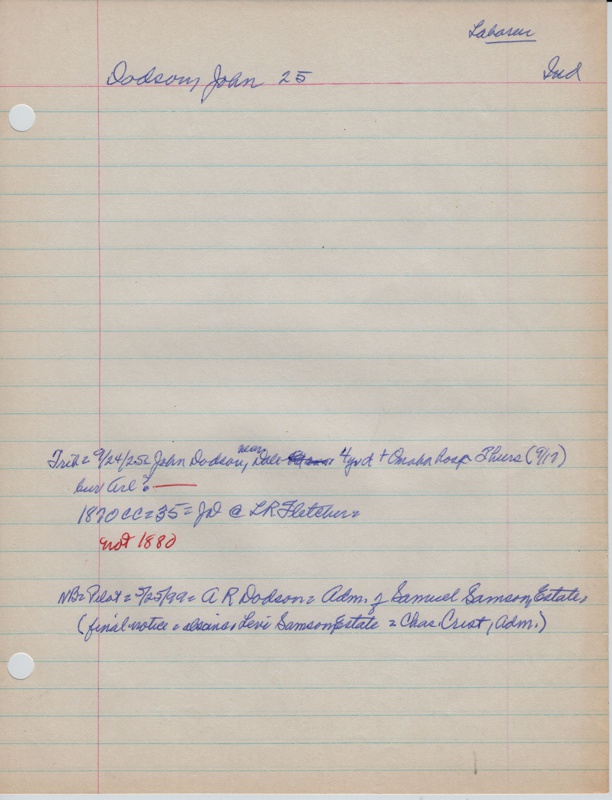 Laborer
Dodson, John 25 Ind
near
Trib = 9/24/25 = John Dodson, Dale 4 yrd + Omaha hosp Thurs (9/17)
bur Arl ? —
1870 CC = 35 = Ind @ LR Fletcher =
not 1880
NB = Pilot = 5/25/99 = A R Dodson = Adm. of Samuel Samson Estate,
(final notice = Levi Samson Estate = Chas. Crist, Adm.)